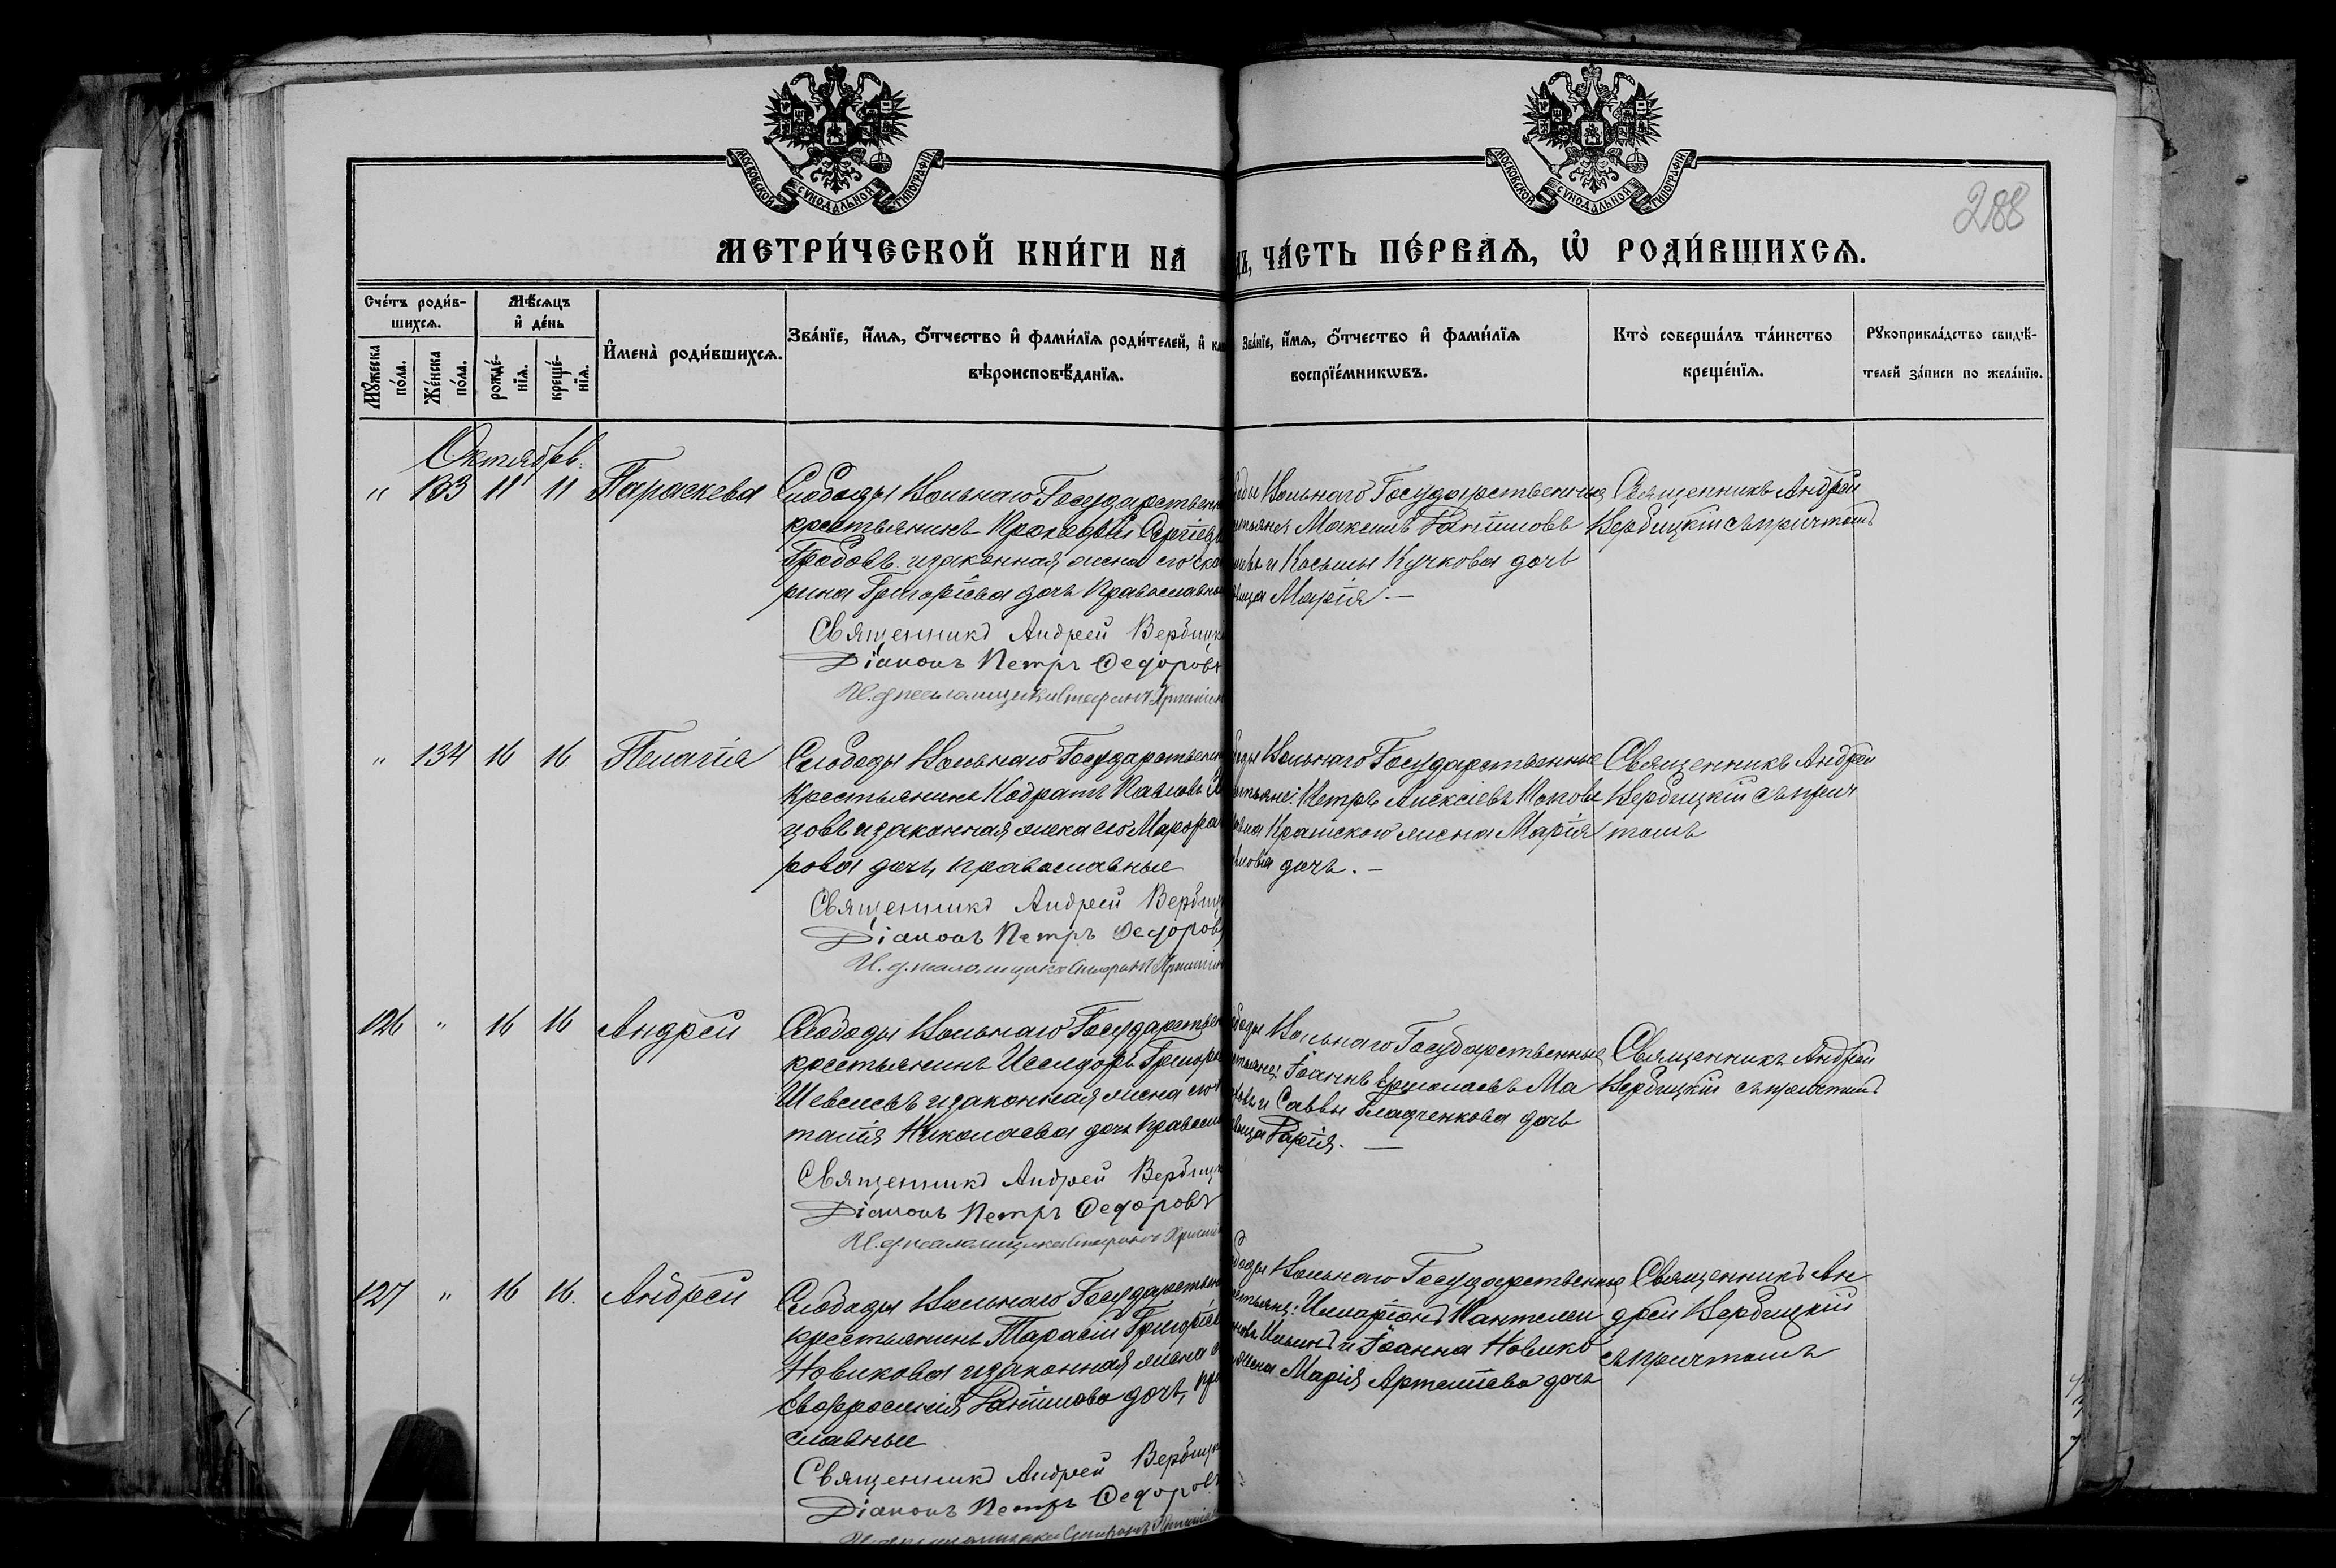 МОСКОВСКОЙ СѴНОДАЛЬНОЙ ТИПОГРАФІИ
МОСКОВСКОЙ СѴНОДАЛЬНОЙ ТИПОГРАФІИ
288
МЕТРИ́ЧЕСКОЙ КНИ́ГИ НА
ДЪ, ЧА́СТЬ ПЕ́РВАѦ, Ѡ҆ РОДИ́ВШИХСѦ.
Сче́тъ роди́в-
шихсѧ.
Мꙋ́жеска по́ла.
Же́нска по́ла.
Мѣ́сѧцъ
и҆ де́нь
рожде́-нїѧ.
креще́-нїѧ.
И҆мена̀ роди́вшихсѧ.
Зва́нїе, и҆́мѧ, ѻ҆́тчество и҆ фами́лїѧ роди́телей, и҆
вѣроисповѣ́данїѧ.
Зва́нїе, и҆́мѧ, ѻ҆́тчество и҆ фами́лїѧ
воспрїе́мникѡвъ.
Кто̀ соверша́лъ та́инство
креще́нїѧ.
Рꙋкоприкла́дство свидѣ́-
телей за́писи по жела́нїю.
Октябрь.
" 133 11 11 Параскева
Слободы Вольнаго Государствен
крестьянинъ Прокофій Сергіев
Гробовъ и законная жена его Ека
рина Григоріева дочь Православны
Священникъ Андрей Вербицк
Діаконъ Петръ Федоровъ
И. д. псаломщика Стефанъ
боды Вольнаго Государственные
стьяне Максимъ Даніиловъ
и Косьмы Кучкова дочь
вица Марія. —
Священникъ Андрей
Вербицкій съ причтомъ
" 134 16 16 Пелагія
Слободы Вольнаго Государственн
крестьянинъ Кодратъ Павловъ
цовъ и законная жена его Марфа
рова дочь, православные
Священникъ Андрей Вербиц
Діаконъ Петръ Федоров
И. д. псаломщика Стефанъ
боды Вольнаго Государственные
стьяне: Петръ Алексіевъ Попов
Крамского жена Марія
дочь. —
Священникъ Андрей
Вербицкій съ прич
томъ
126 " 16 16 Андрей
Слободы Вольнаго Государствен
крестьянинъ Исидоръ Григор
Шевелевъ и законная жена его
талія Николаева дочь Правосл
Священникъ Андрей Вербицк
Діаконъ Петръ Федоровъ
И. д. псаломщика Стефанъ
боды Вольнаго Государственные
стьяне: Іоаннъ Ермолаевъ Ма
и Саввы Гладченкова дочь
вица Дарія. —
Священникъ Андрей
Вербицкій съ причтомъ
127 " 16 16. Андрей
Слободы Вольнаго Государствен
крестьянинъ Тарасій Григоріев
Новиковъ и законная жена
Евфросинія Даніилова дочь, пра
славные
Священникъ Андрей Вербиц
Діаконъ Петръ Федоров
боды Вольнаго Государственные
стьяне: Иларіонъ Пантелеи
моновъ Ильинъ и Іоанна Новико
жена Марія Артеміева дочь
Священникъ Ан
дрей Вербицкій
съ причтомъ